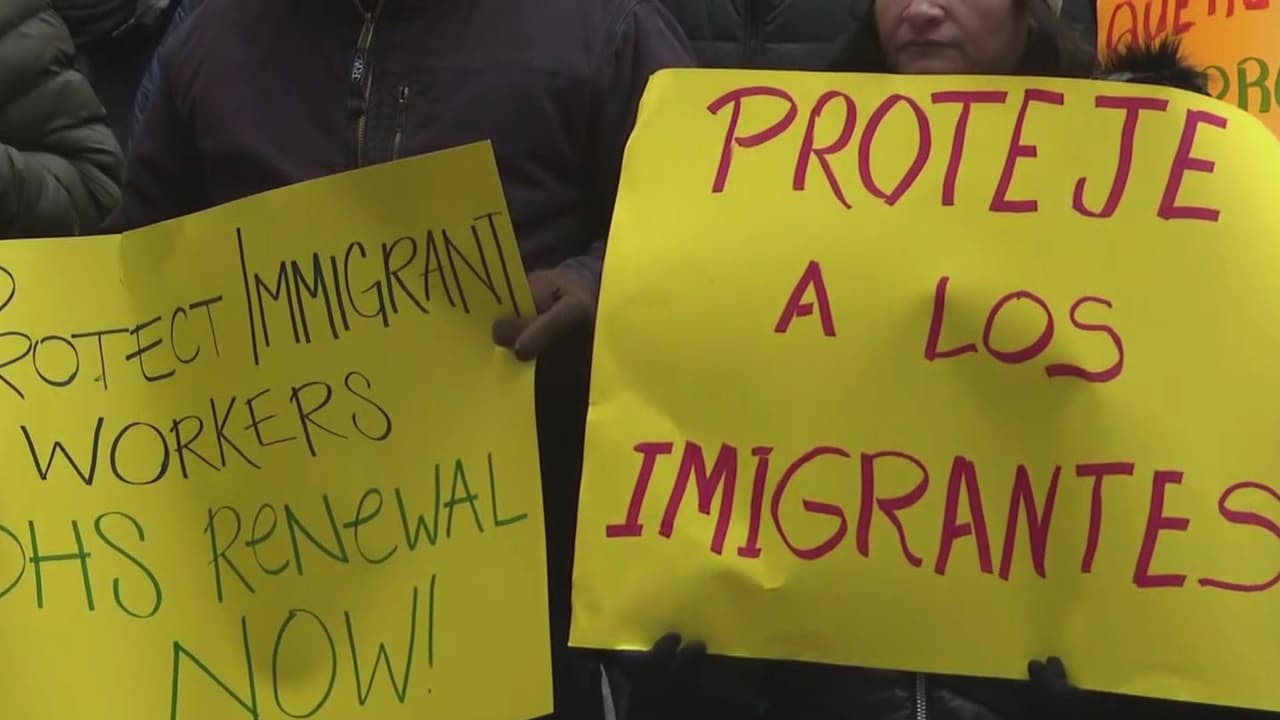 PROTECT IMMIGRANT
WORKERS
DHS RENEWAL
NOW!
PROTEJE
A LOS
IMIGRANTES
QUE